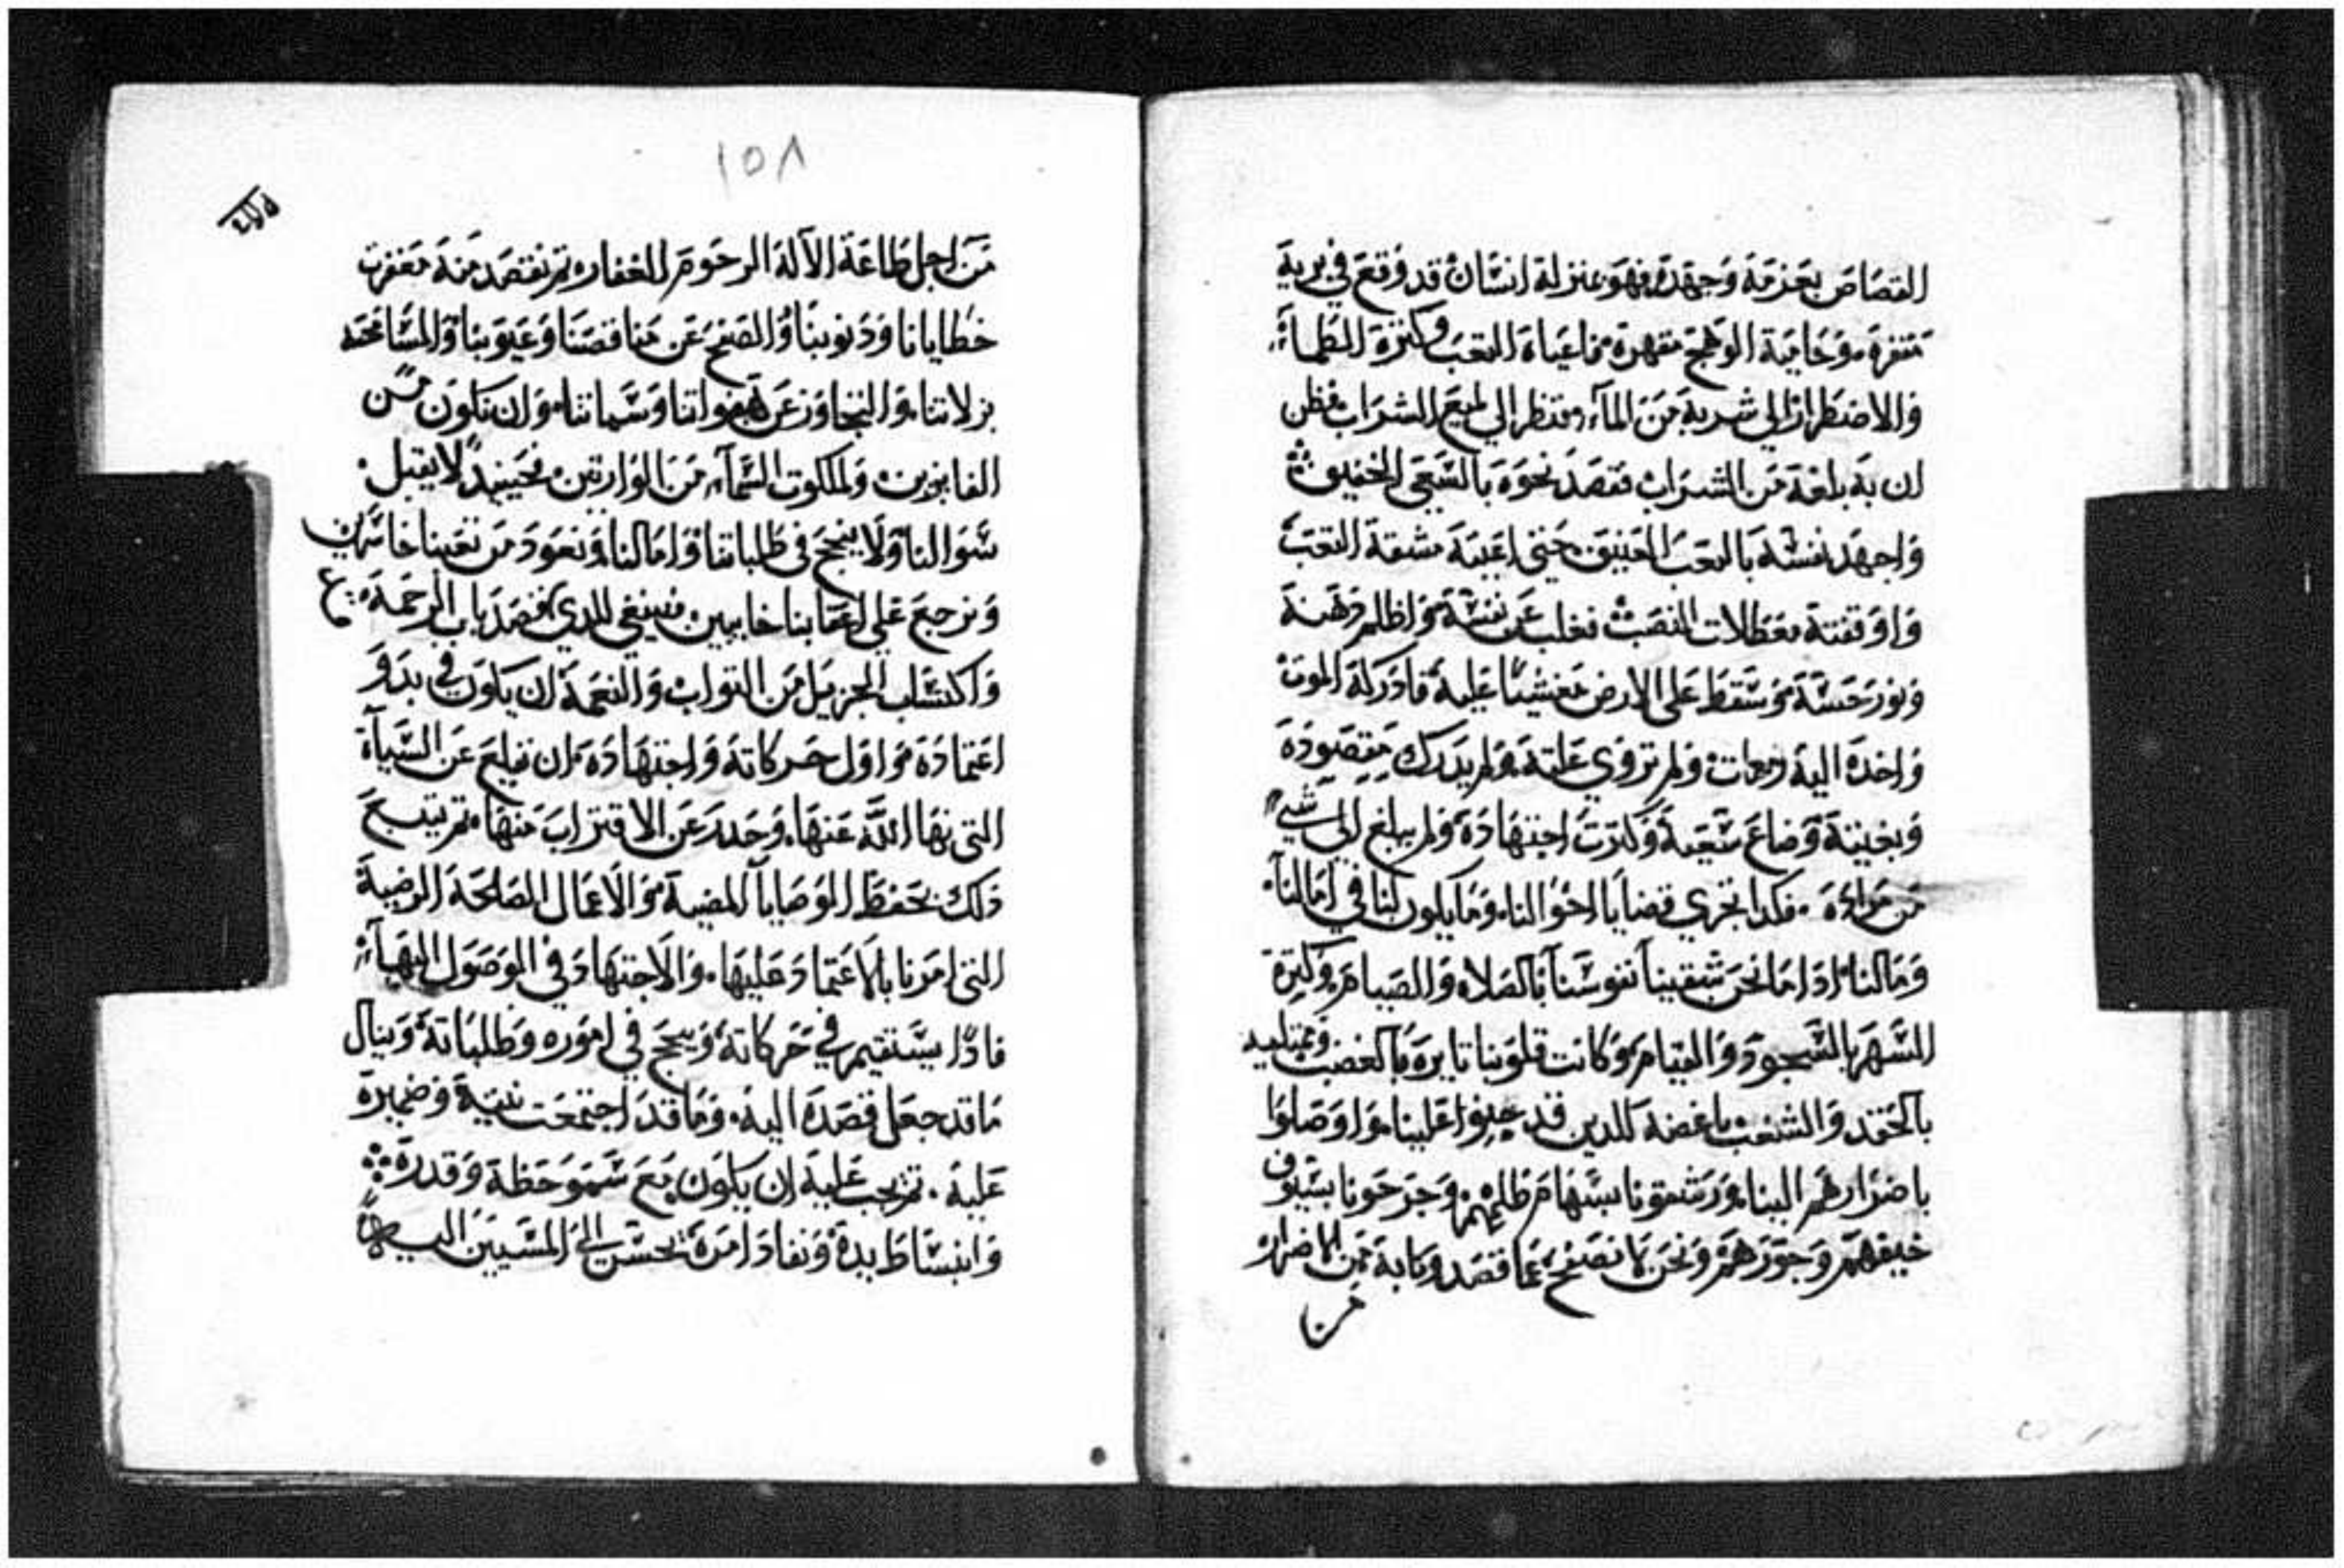 القصاص بعزمة وجهدة فهو بمنزلة انسان قد وقع في برية
مقفرة وحامية الوهج مقهرة فاعياه التعب وكثرة الظماء
والاضطرار الي شربة من الماء فنظر الي لميع الشراب فظن
ان به بلغة من الشراب فقصد نحوه بالسعي الخفيق
واجهد نفسه بالتعب العنيق حتي اعيته مشقة التعب
واوقفتة معطلات النصب فغلب عن نفسة واظلم دهنة
ونور حسة وسقط علي الارض مغشيا علية فادركة الموت
واخده الية ومات ولم تروي غلتة ولم يدرك مقصودة
وبغيتة وضاع سعية وكترت اجتهادة ولم يبلغ الي شي
من مرادة فكدا تجري قضايا احوالنا وما يكون لنا في امالنا
ومالنا ادا ما نحن شقينا نفوسنا بالصلاه والصيام وكترة
السهر بالسجود والقيام وكانت قلوبنا تايره بالغضب وممتليه
بالحقد والشغب باغضه للدين قد جنوا علينا واوصلوا
باضرارهم الينا ورشقونا بسهام ظلمهم وجرحونا بسيوف
حيفهم وجورهم ونحن لا نصفح عما قصدونا به من الاضرار
من
١٥٨
من اجل طاعة الالة الرحوم الغفار تم نقصد منة مغفرت
خطايانا ودنوبنا والصفح عن مناقصنا وعيوبنا والمسامحه
بزلاتنا والتجاوز عن هفواتنا وسماتنا وان نكون من
الفايزين ولملكوت السماء من الوارتين فحينيد لا يقبل
سوالنا ولا ينجح في طلباتنا وامالنا ونعود من تعبنا خاسرين
ونرجع علي اعقابنا خايبين فينبغي للدي قصد باب الرحمة
واكتساب الجزيل من التواب والنعمة ان يكون في بدو
اعتمادة واول حركاتة واجتهادة ان يقلع عن السياة
التي نها الله عنها وحدر عن الاقتراب منها تم يتبع
دلك بحفظ الوصايا المضية والاعمال الصالحة المرضية
التي امرنا بالاعتماد عليها والاجتهاد في الوصول اليها
فادا يستقيم في حركاتة وينجح في اموره وطلباتة وينال
ما قد جعل قصدة الية وما قد اجتمعت نيتة وضميرة
علية تم يجب علية ان يكون مع سمو حظة وقدرة
وانبساط يدة ونفاد امرة يحسن الي المسيين اليه